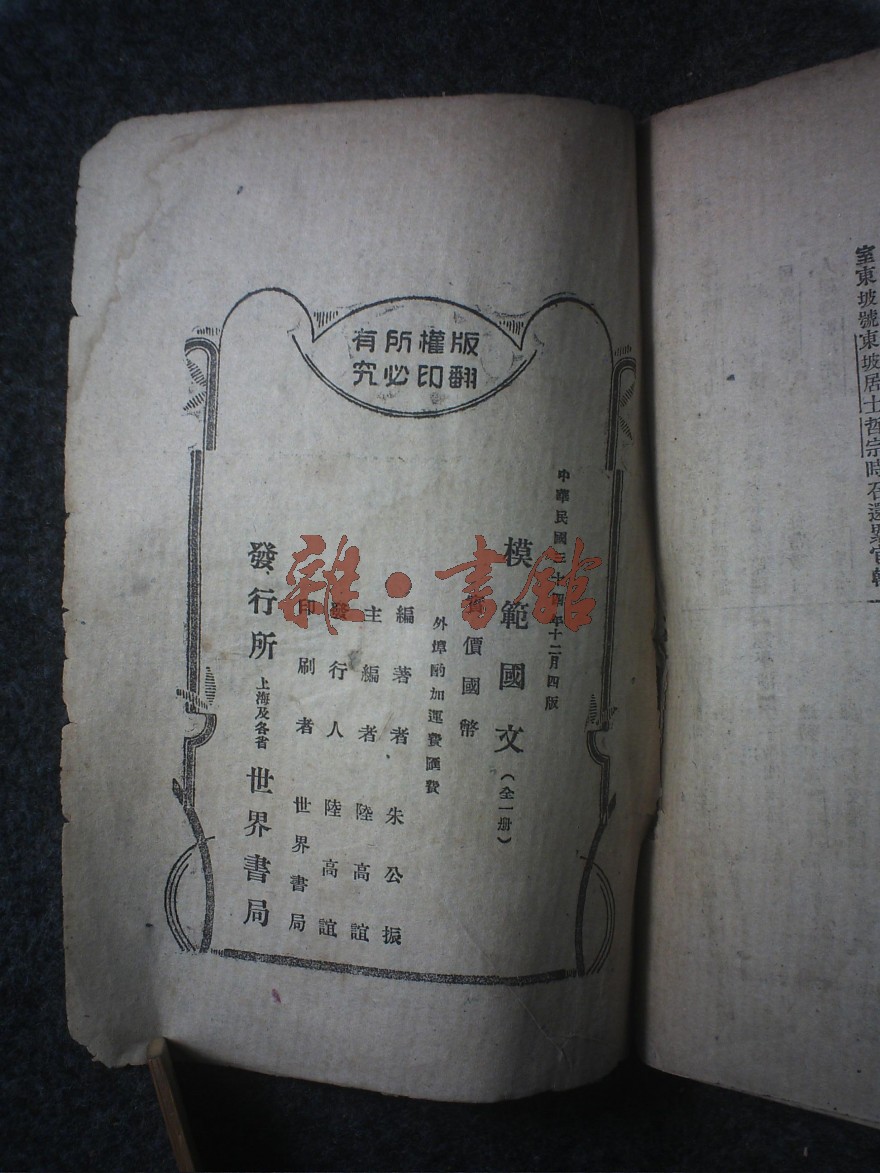 版權所有
翻印必究
中華民國三十四年十二月四版
模範國文(全一册)
實價國幣
外埠酌加運費匯費
編著者 朱公振
主編者 陸高誼
發行人 陸高誼
印刷者 世界書局
發行所 上海及各省 世界書局
雜·書館
室東坡號東坡居士哲宗時召還